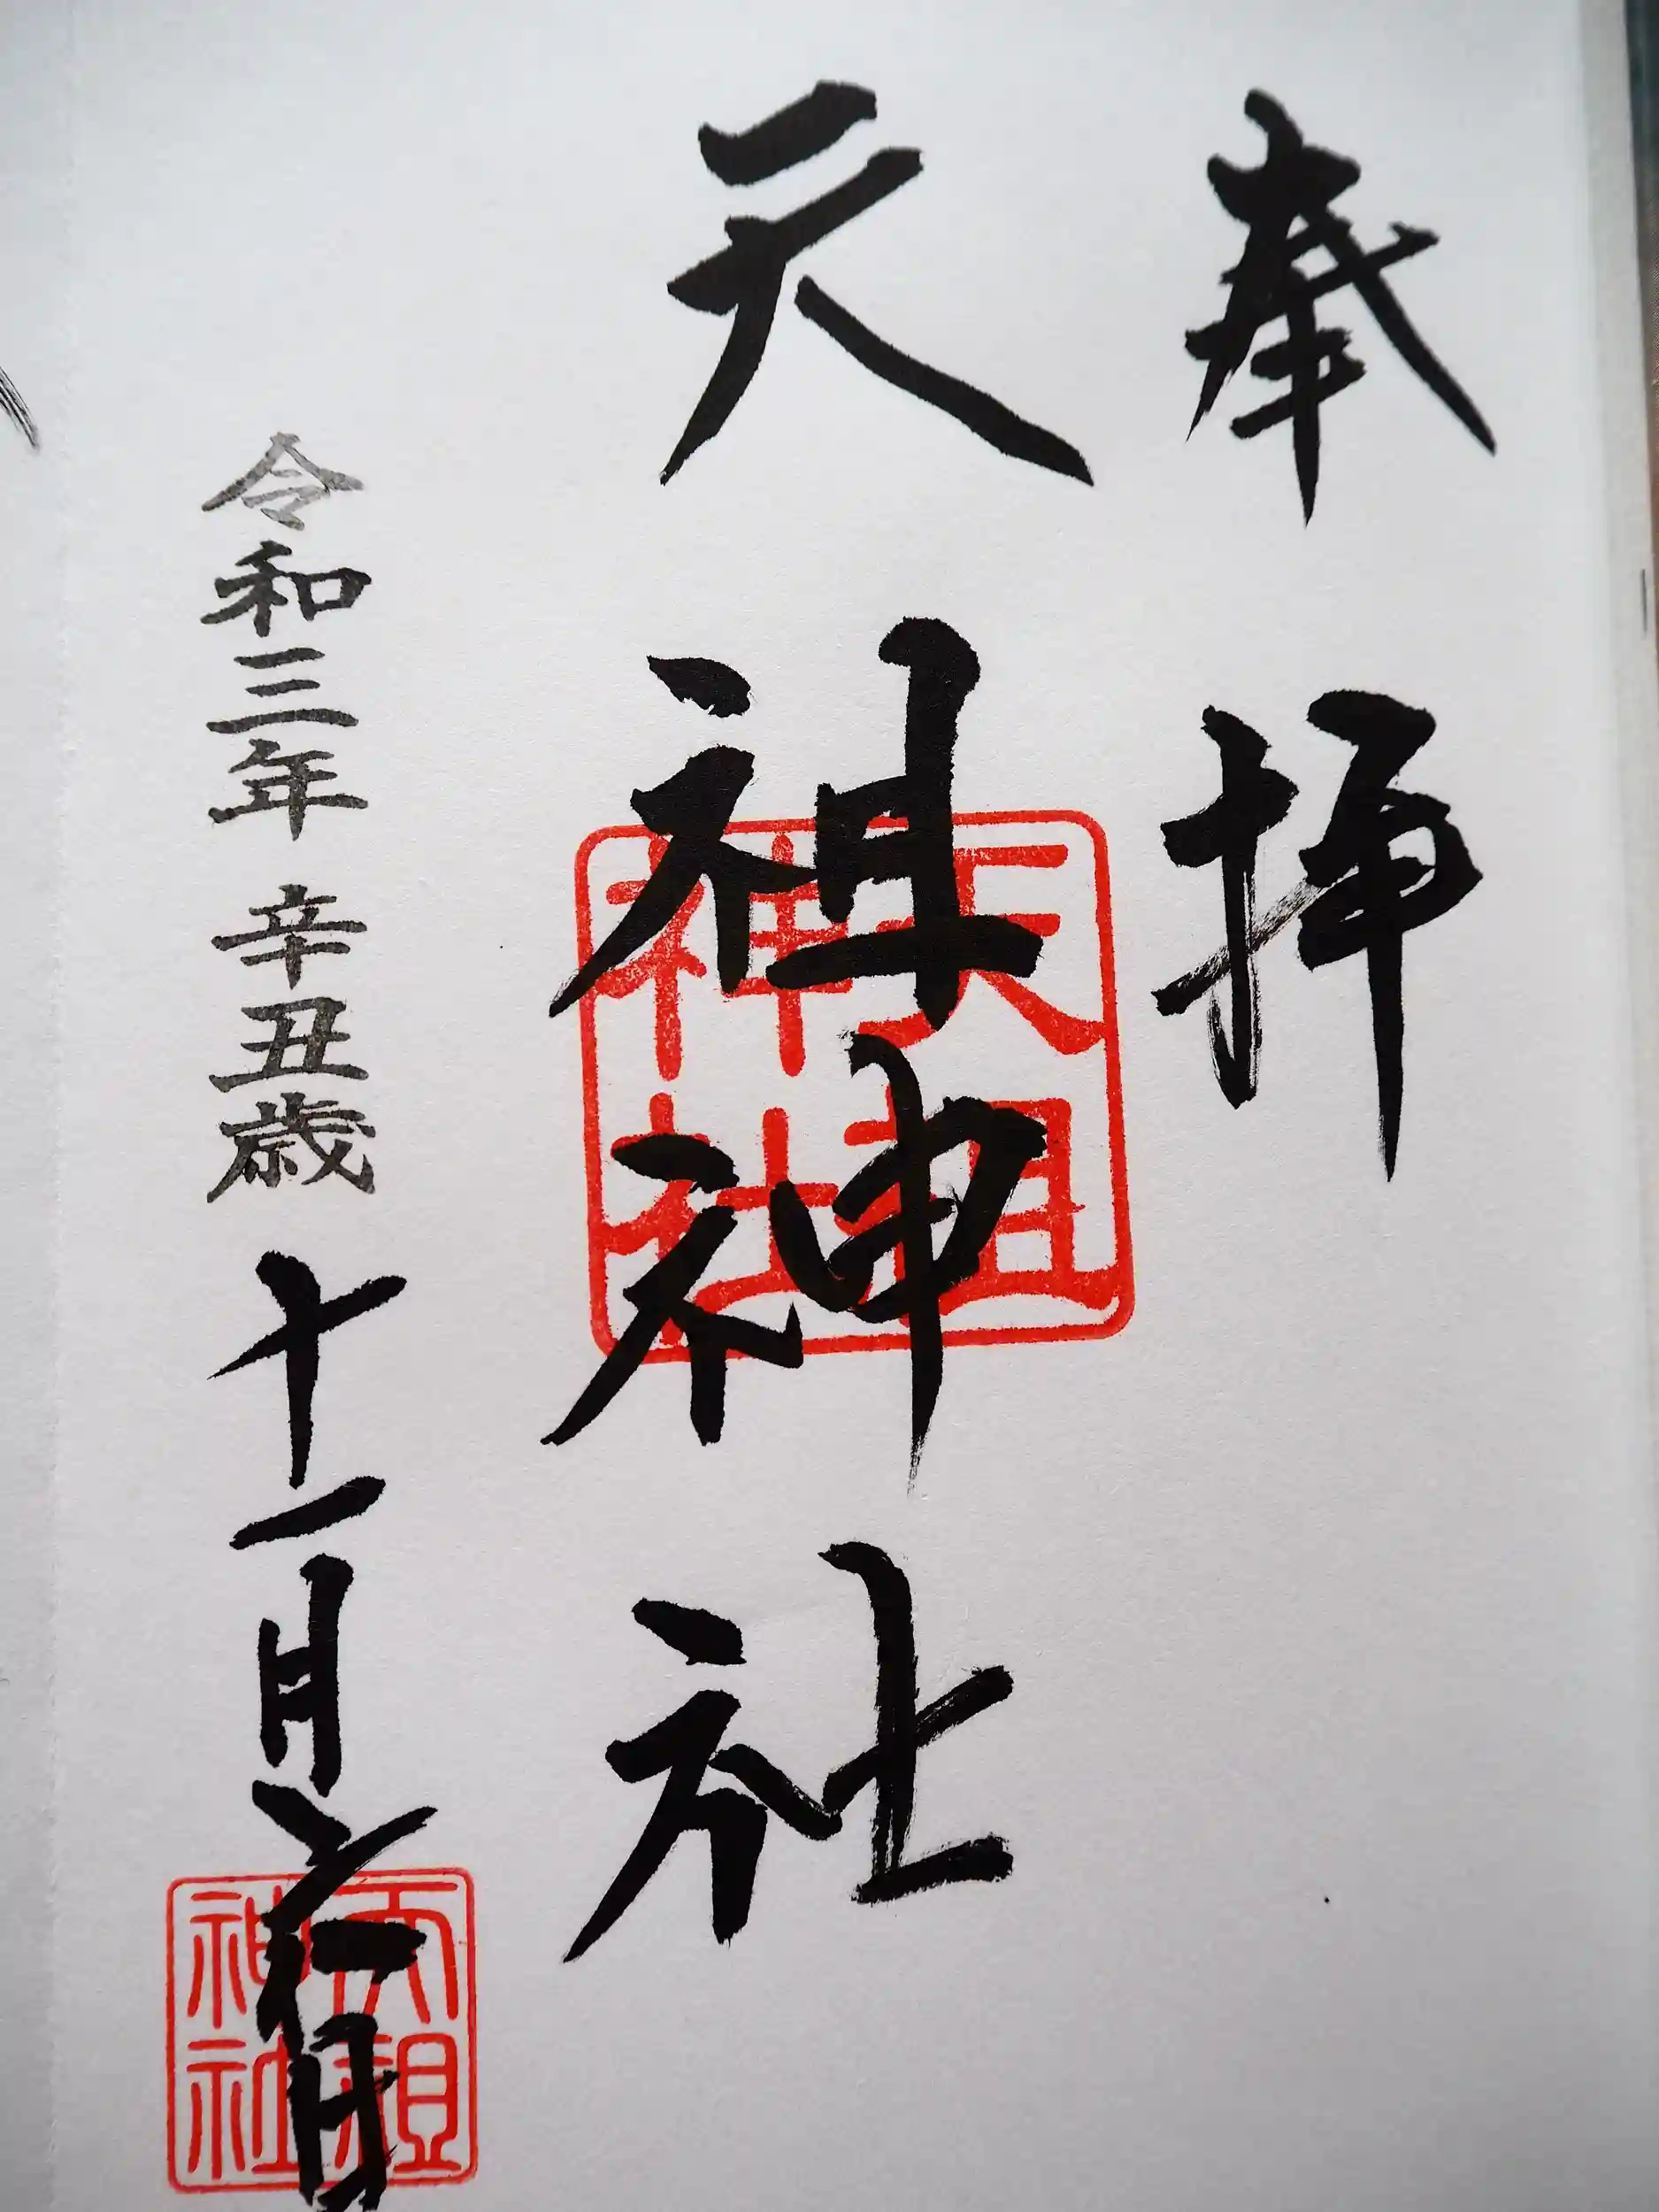 奉拝
天祖神社
天祖神社
令和三年 辛丑歳 十一月
天祖神社